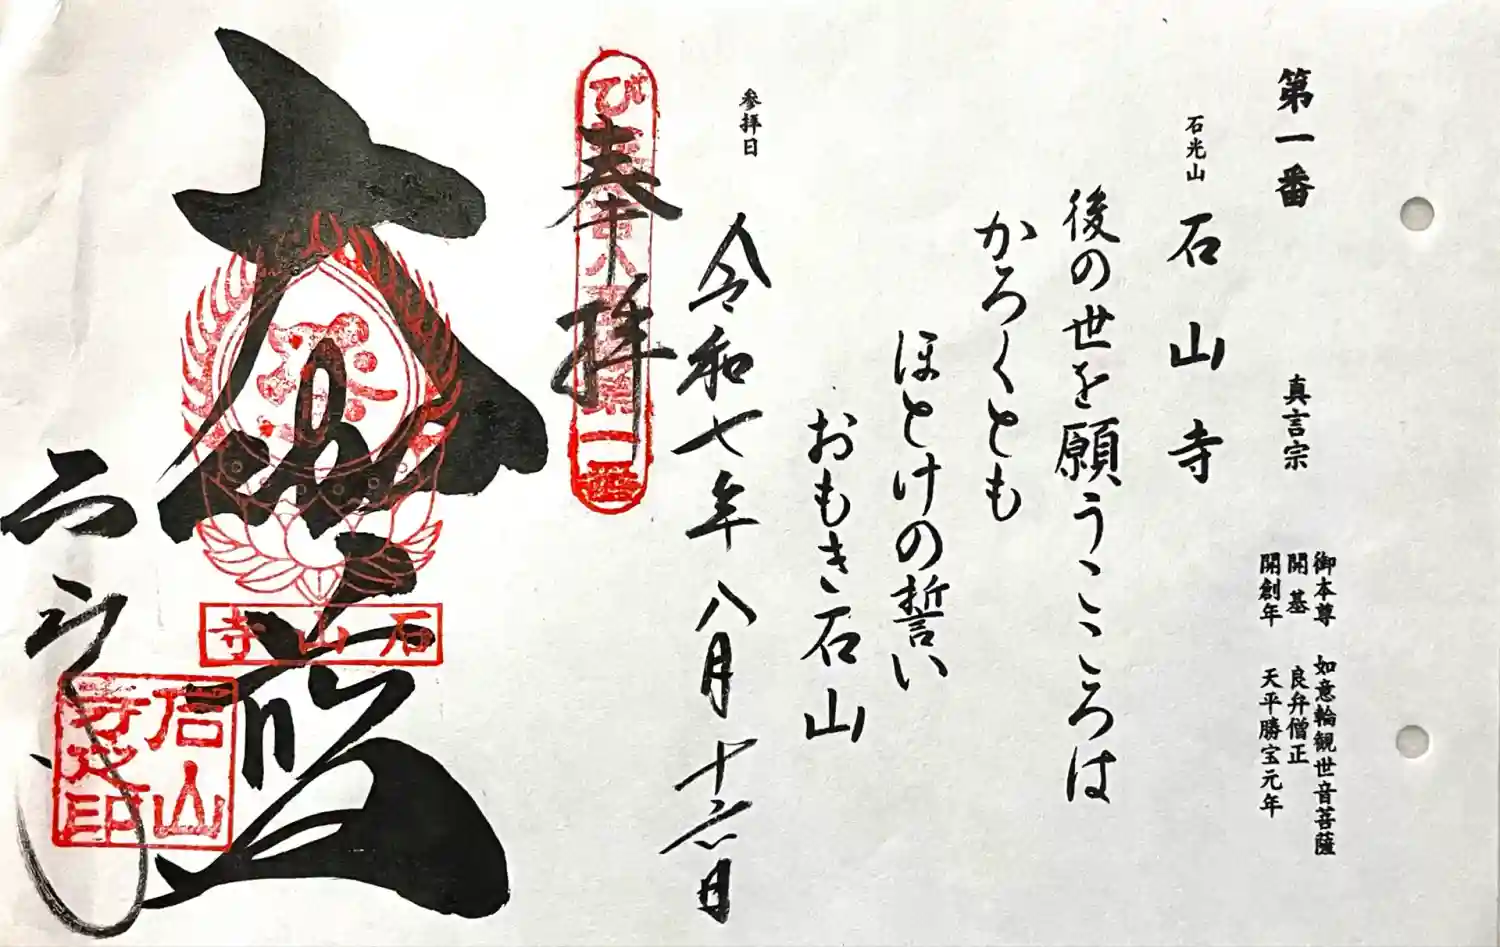 第一番
真言宗
御本尊 如意輪観世音菩薩
開基 良弁僧正
開創年 天平勝宝元年
石光山 石山寺
後の世を願うこころは
かろくとも
ほとけの誓い
おもき石山
参拝日
令和七年八月十六日
奉拝
び
八
第一番
大伽藍
石山寺
石山寺之印